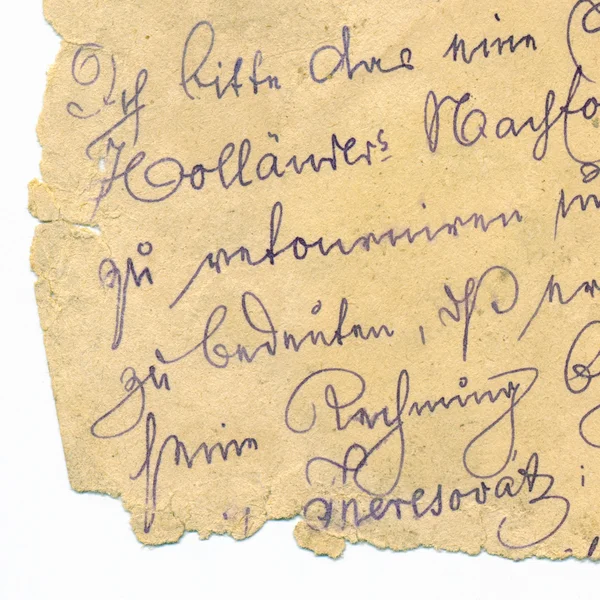 Ich bitte das eine
Holländers Nachfo
zu retourniren
zu bedeuten, daß er
seine Rechnung
Theresovátz